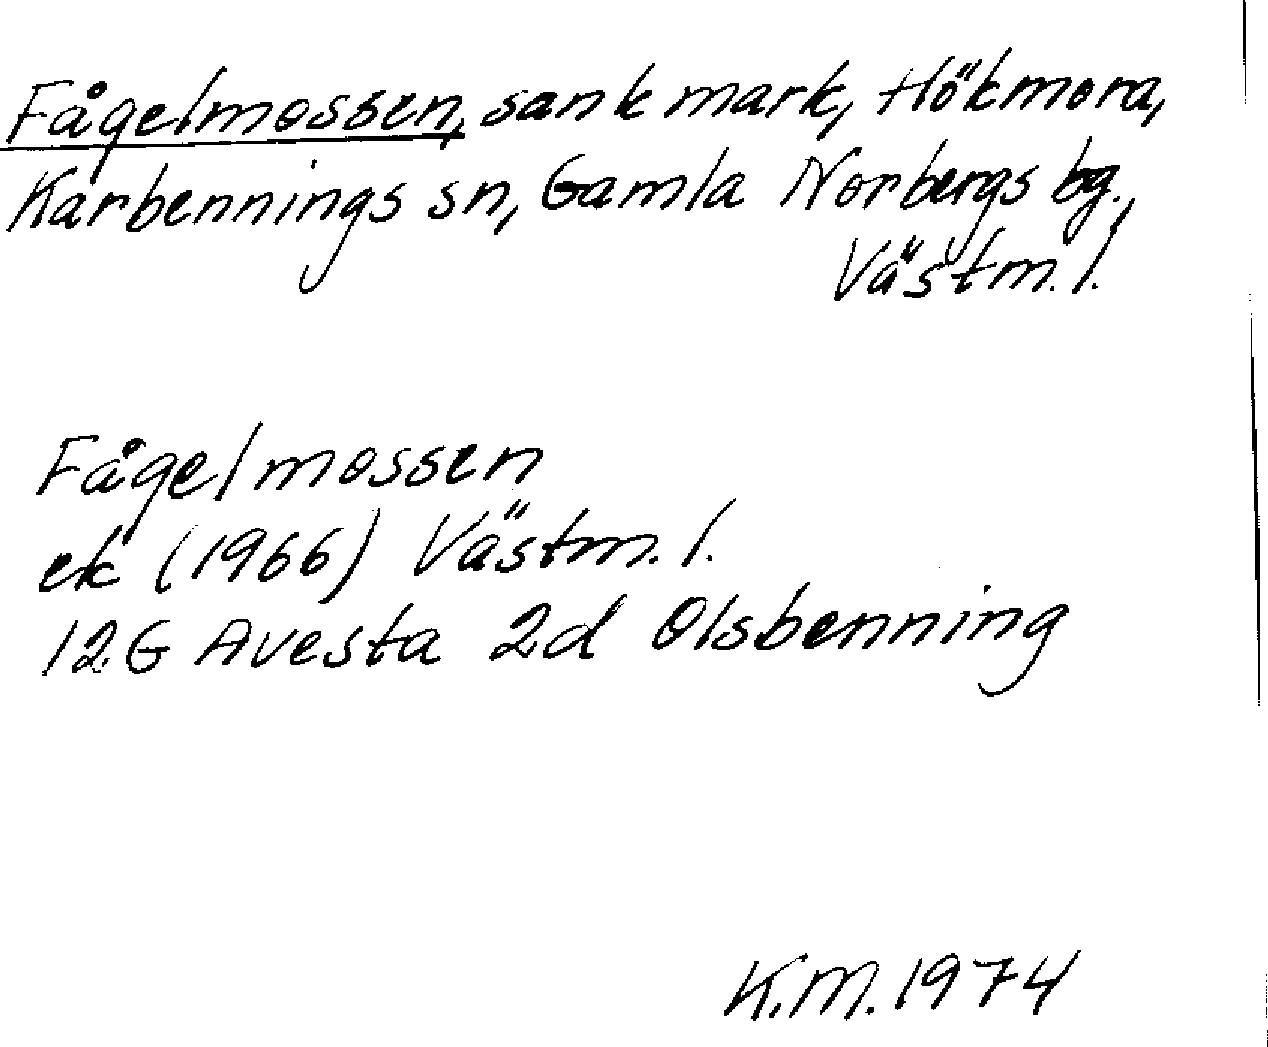 Fågelmossen, sank mark, Hökmora,
Karbennings sn, Gamla Norbergs bg.,
Västm. l.
Fågelmossen
ek (1966) Västm. l.
12G Avesta 2d Olsbenning
K.M. 1974